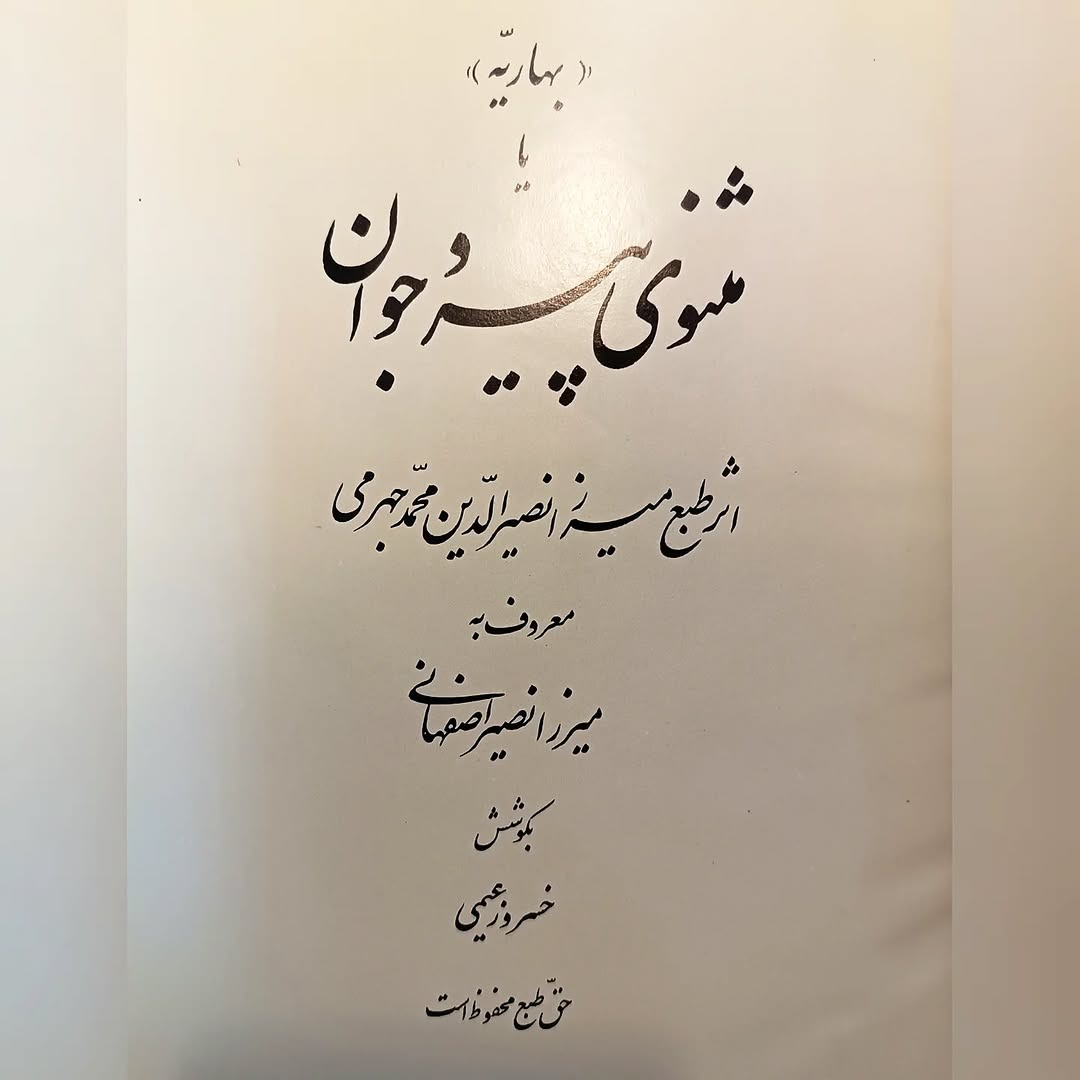 ((بهاریّه))
یا
مثنوی پیر و جوان
اثر طبع میرزا نصیرالدّین محمّد جهرمی
معروف به
میرزا نصیر اصفهانی
بکوشش
خسرو زعیمی
حقّ طبع محفوظ است